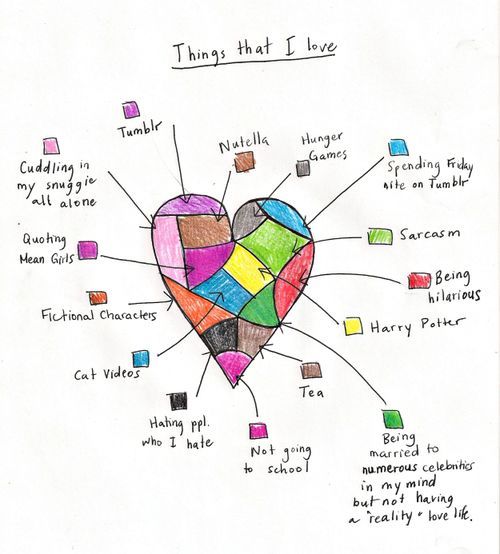 Things that I love
Tumblr
Nutella
Hunger
Games
Cuddling in
my snuggie
all alone
Spending Friday
nite on Tumblr
Quoting
Mean Girls
Sarcasm
Being
hilarious
Fictional Characters
Harry Potter
Cat Videos
Tea
Hating ppl.
who I hate
Not going
to school
Being
married to
numerous celebrities
in my mind
but not having
a "reality" love life.